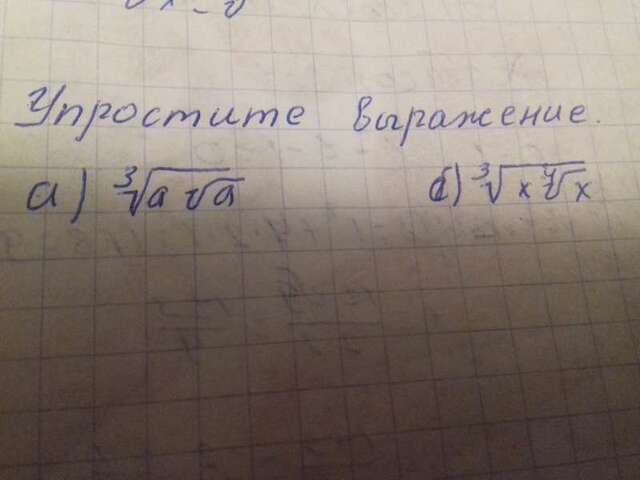 Упростите выражение.
а) ∛(a√a) б) ∛(x∜x)